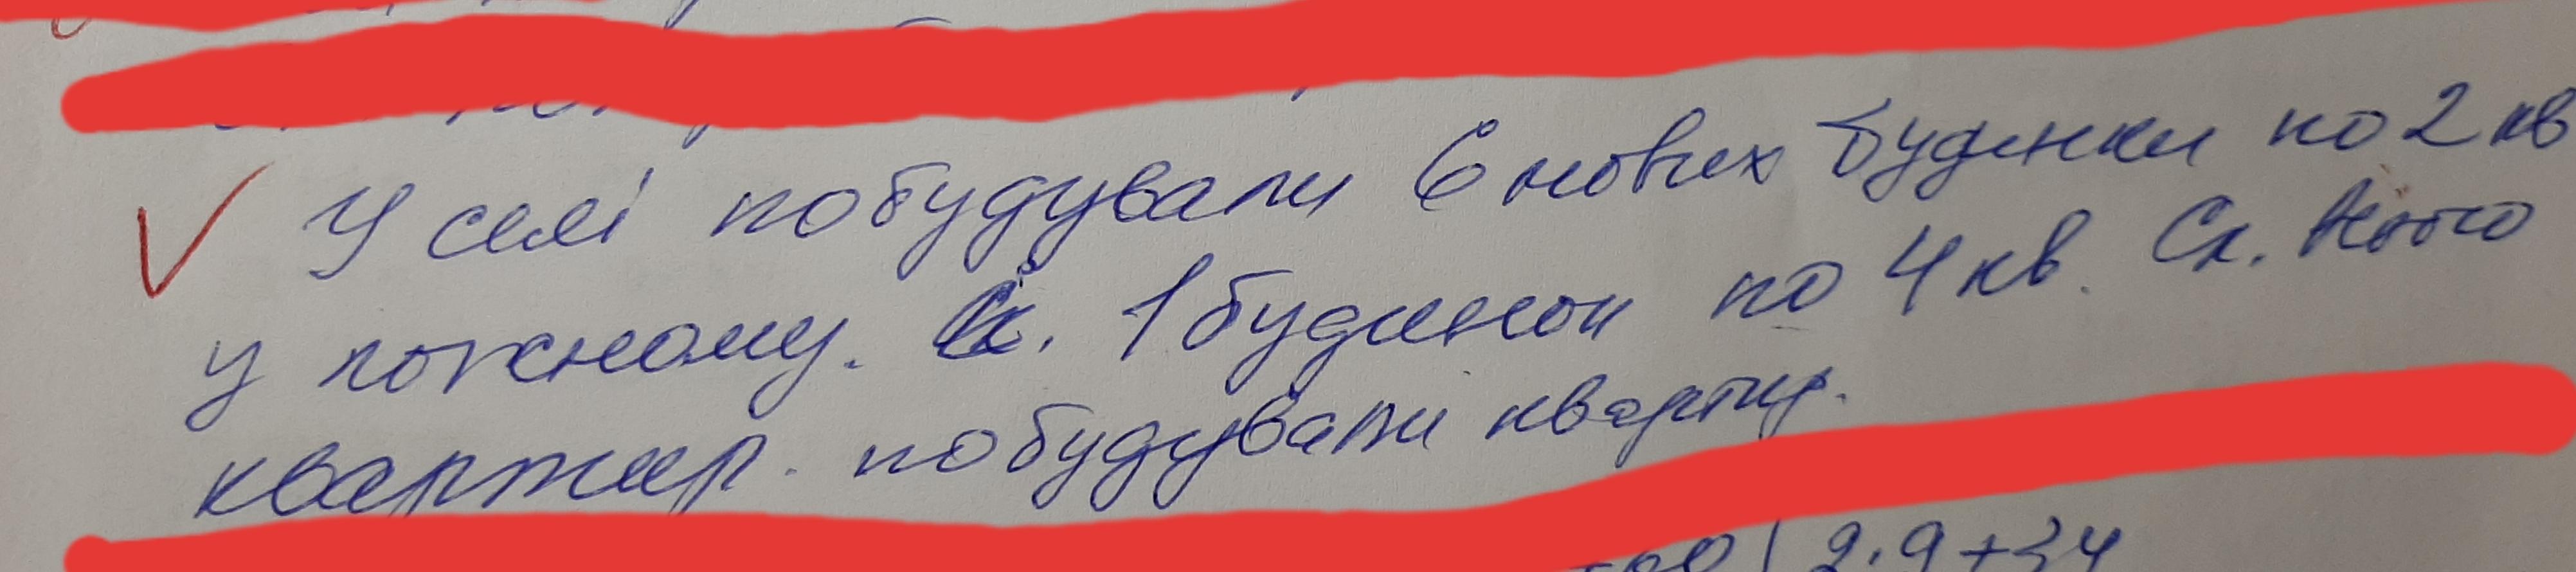 У селі побудували 6 нових будинки по 2 кв
у кожному. 1 будинок по 4 кв. Ск.
квартир. побудували квартир.
2·9+34